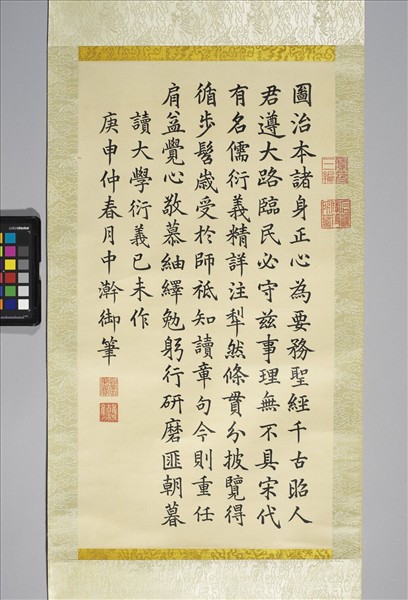 圖治本諸身正心為要務聖經千古昭人
君遵大路臨民必守兹事理無不具宋代
有名儒衍義精詳注犁然條貫分披覽得
循步髫歲受於師祗知讀章句今則重任
肩益覺心敬慕紬繹勉躬行研磨匪朝暮
讀大學衍義己未作
庚申仲春月中澣御筆